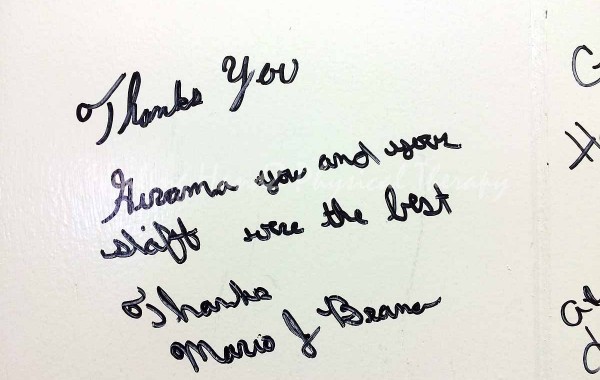 Thanks You
Hirama you and your
staff were the best
Thanks
Mario J Beana
Physical Therapy